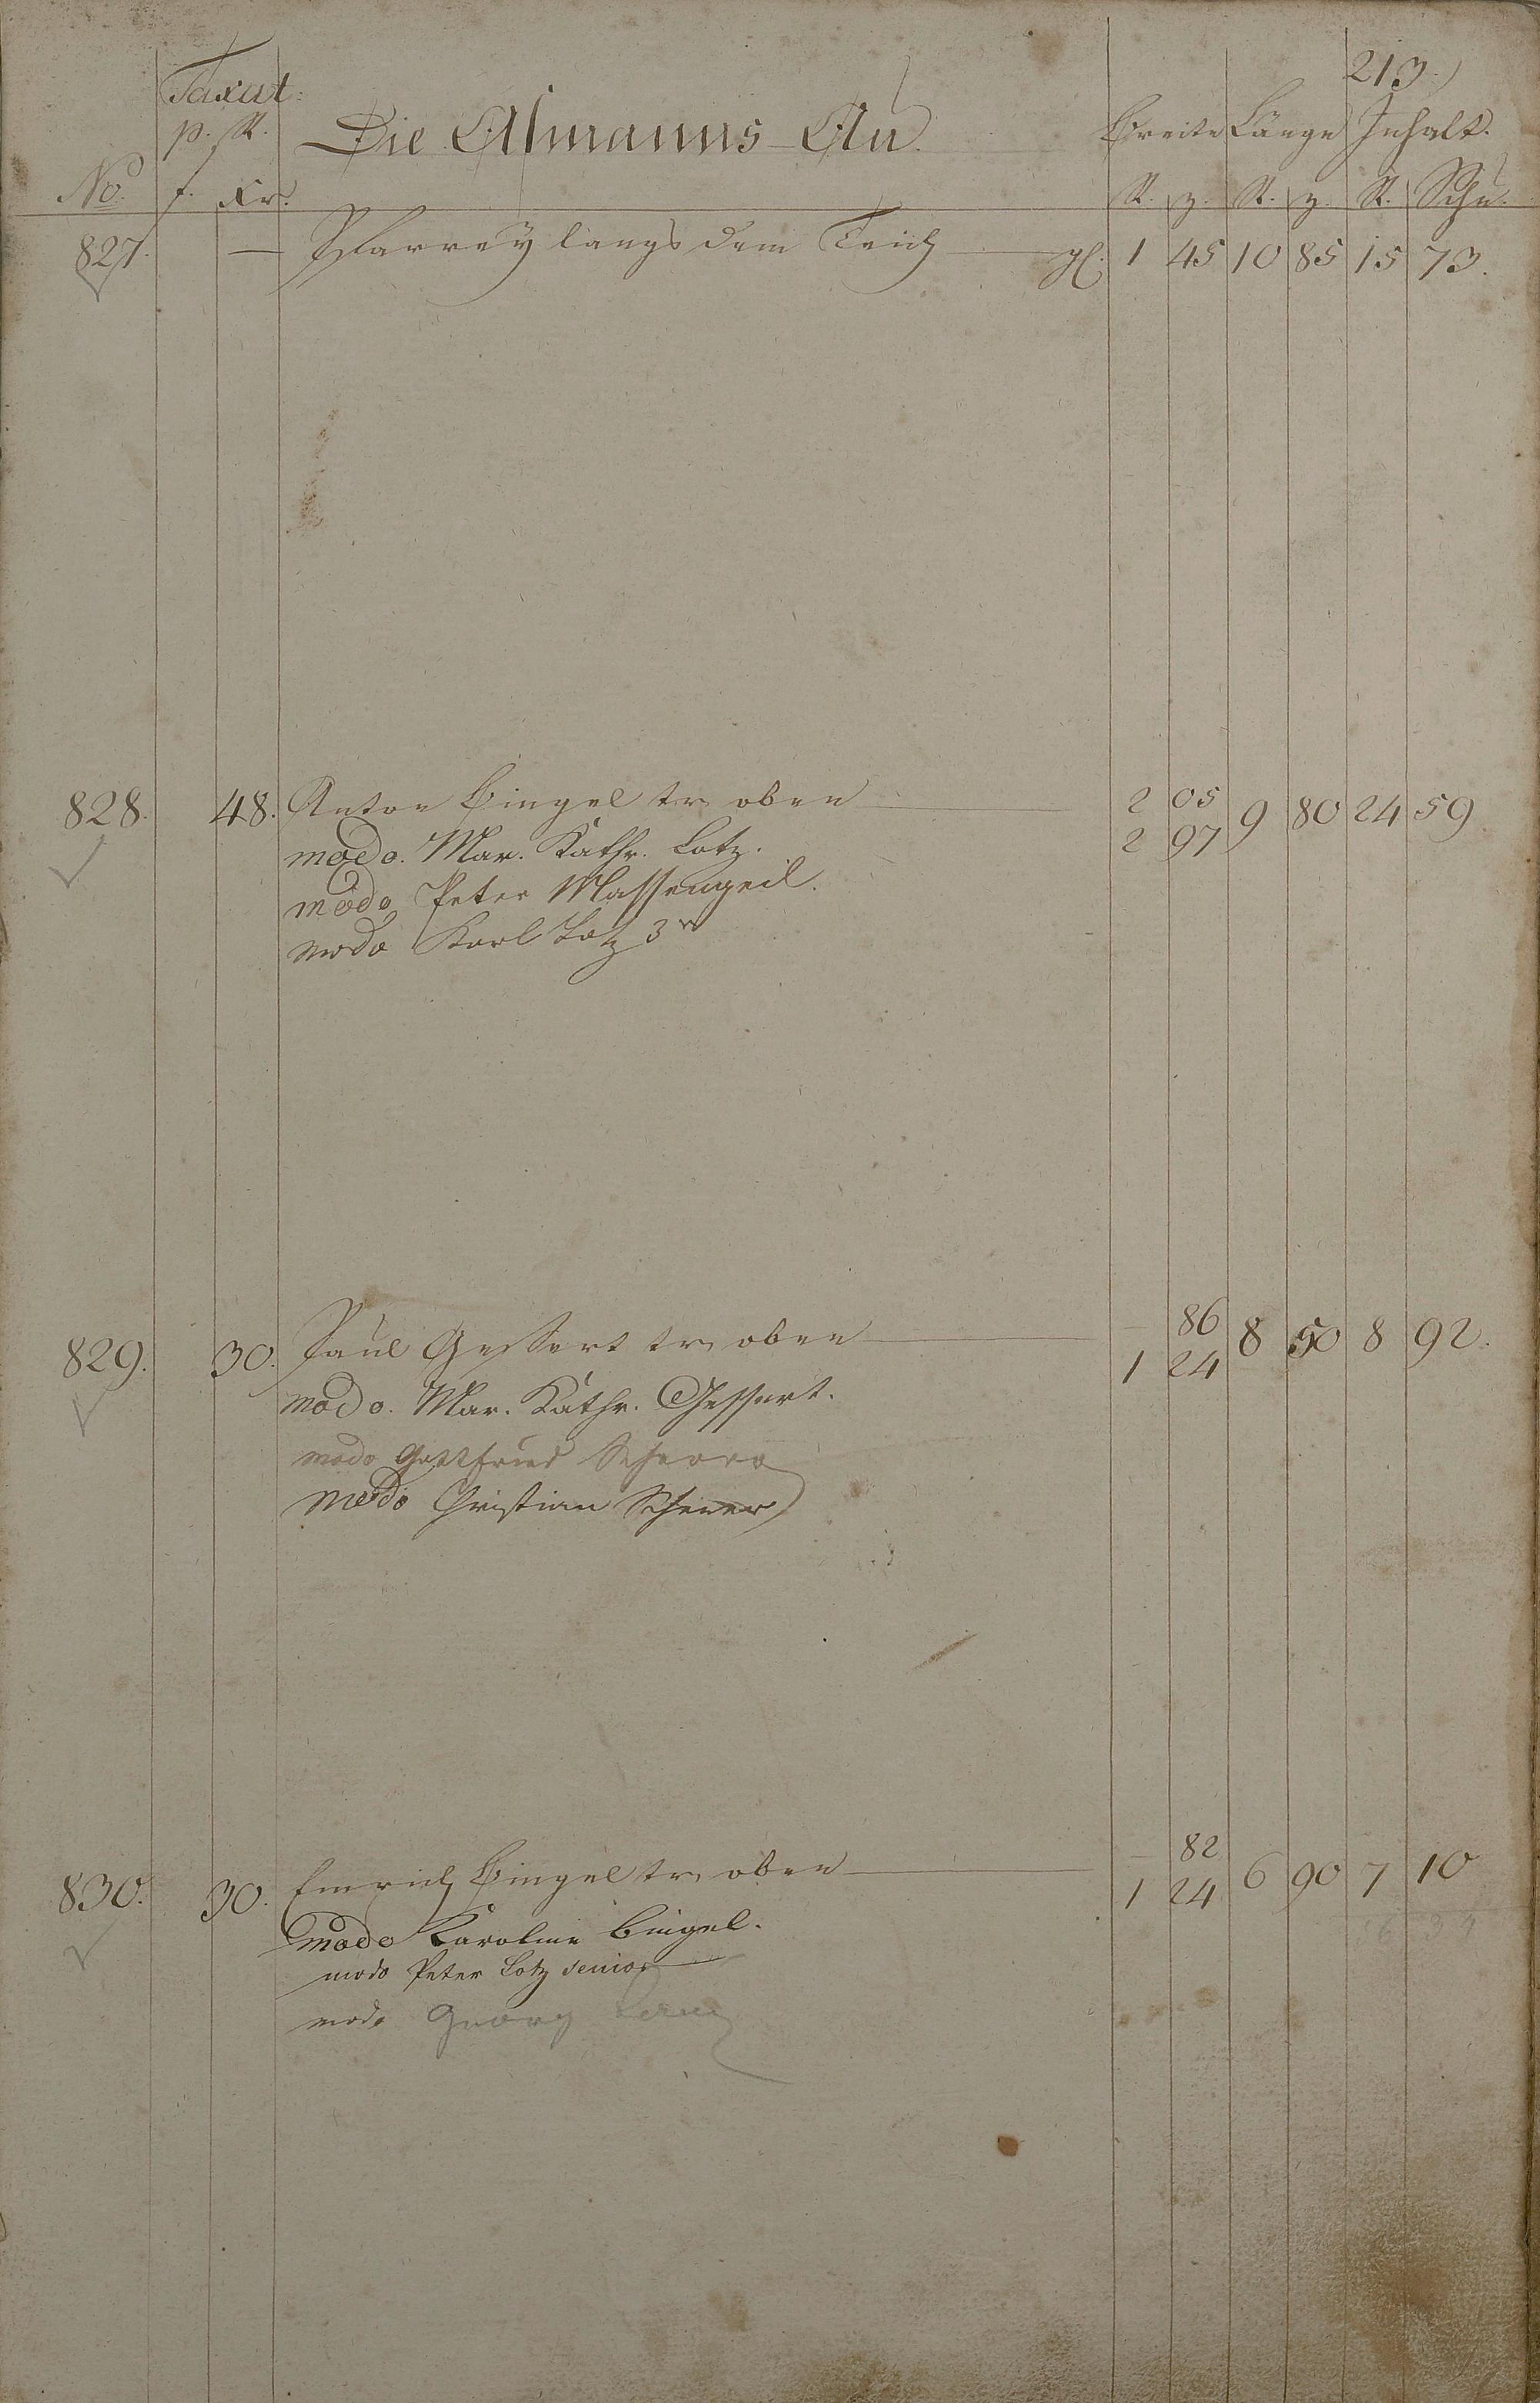 213.)
Taxat:
p. R. Die Almanns-Au. Breite Länge Inhalt.
No. f. Xr. R. z. R. z. R. Schu.
827. — Pfarrey langs dem Teich gl. 1 45 10 85 15 73.
828. 48. Anton Bingel tr. oben 2 05 9 80 24 59
modo. Mar. Kathr. Lotz. 2 97
modo Peter Massengeil.
modo Karl Lotz 3r
829. 30. Paul Gessert tr. oben — 86 8 50 8 92.
modo. Mar. Kathr. Gessert. 1 24
modo Gottfried
modo Christian Scherer
830. 30. Emrich Bingel tr. oben — 82 6 90 7 10
modo Karoline Bingel. 1 24
modo Peter Lotz senior
modo Georg